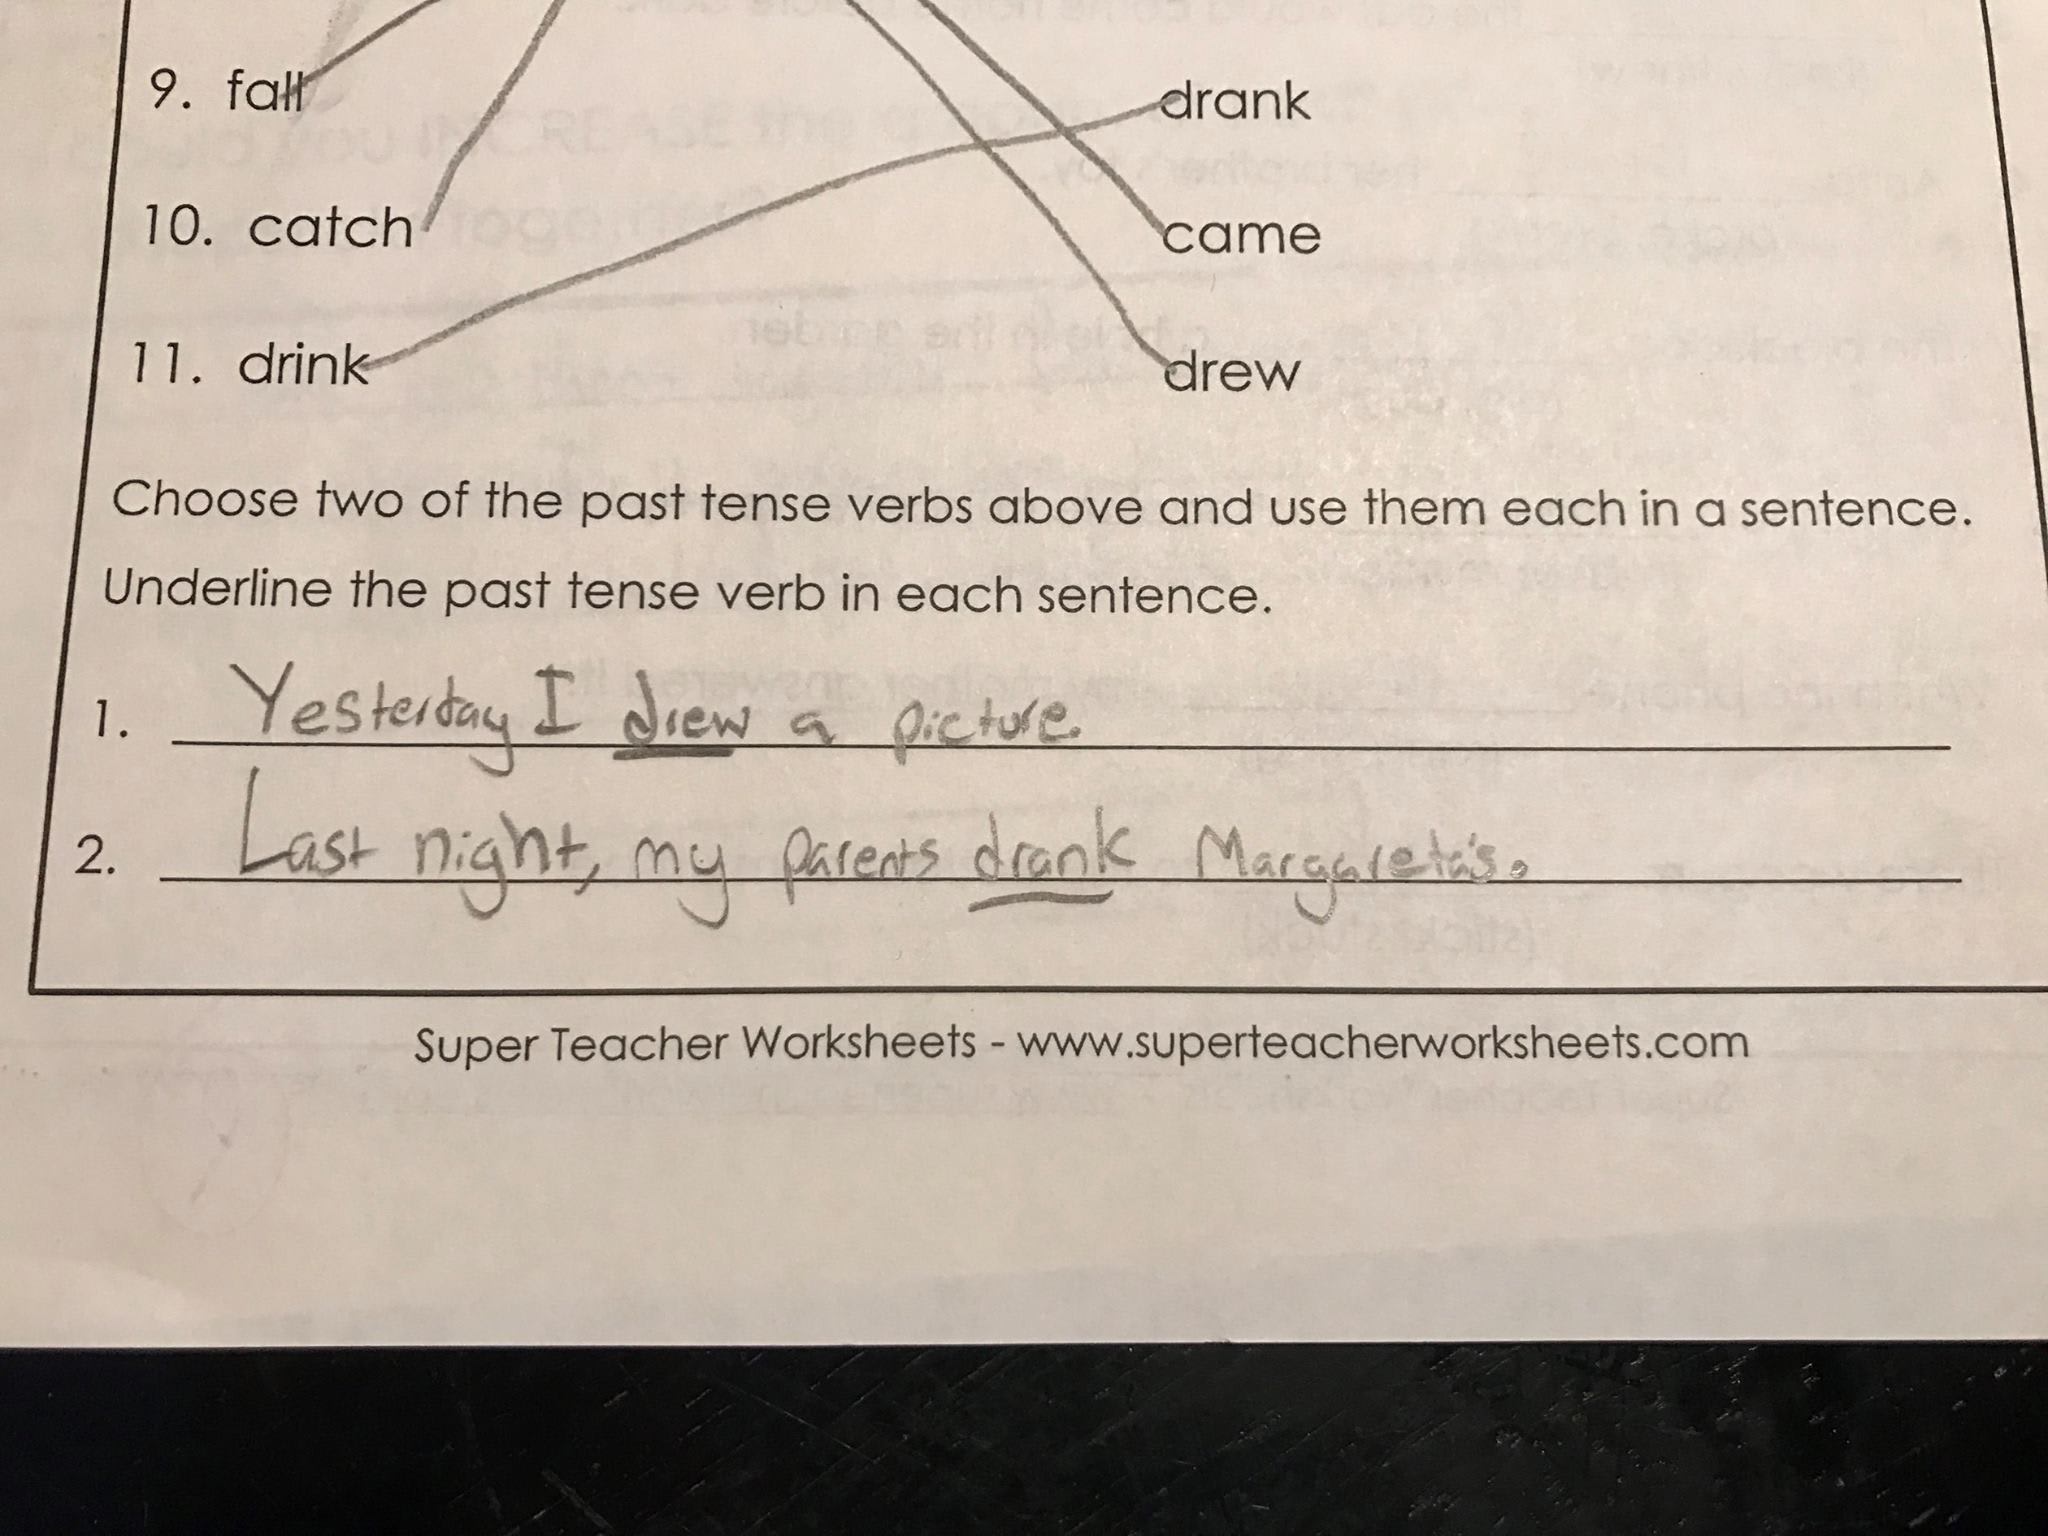 9. fall drank
10. catch came
11. drink drew
Choose two of the past tense verbs above and use them each in a sentence.
Underline the past tense verb in each sentence.
1. Yesterday I drew a picture.
2. Last night, my parents drank Margareta's.
Super Teacher Worksheets - www.superteacherworksheets.com